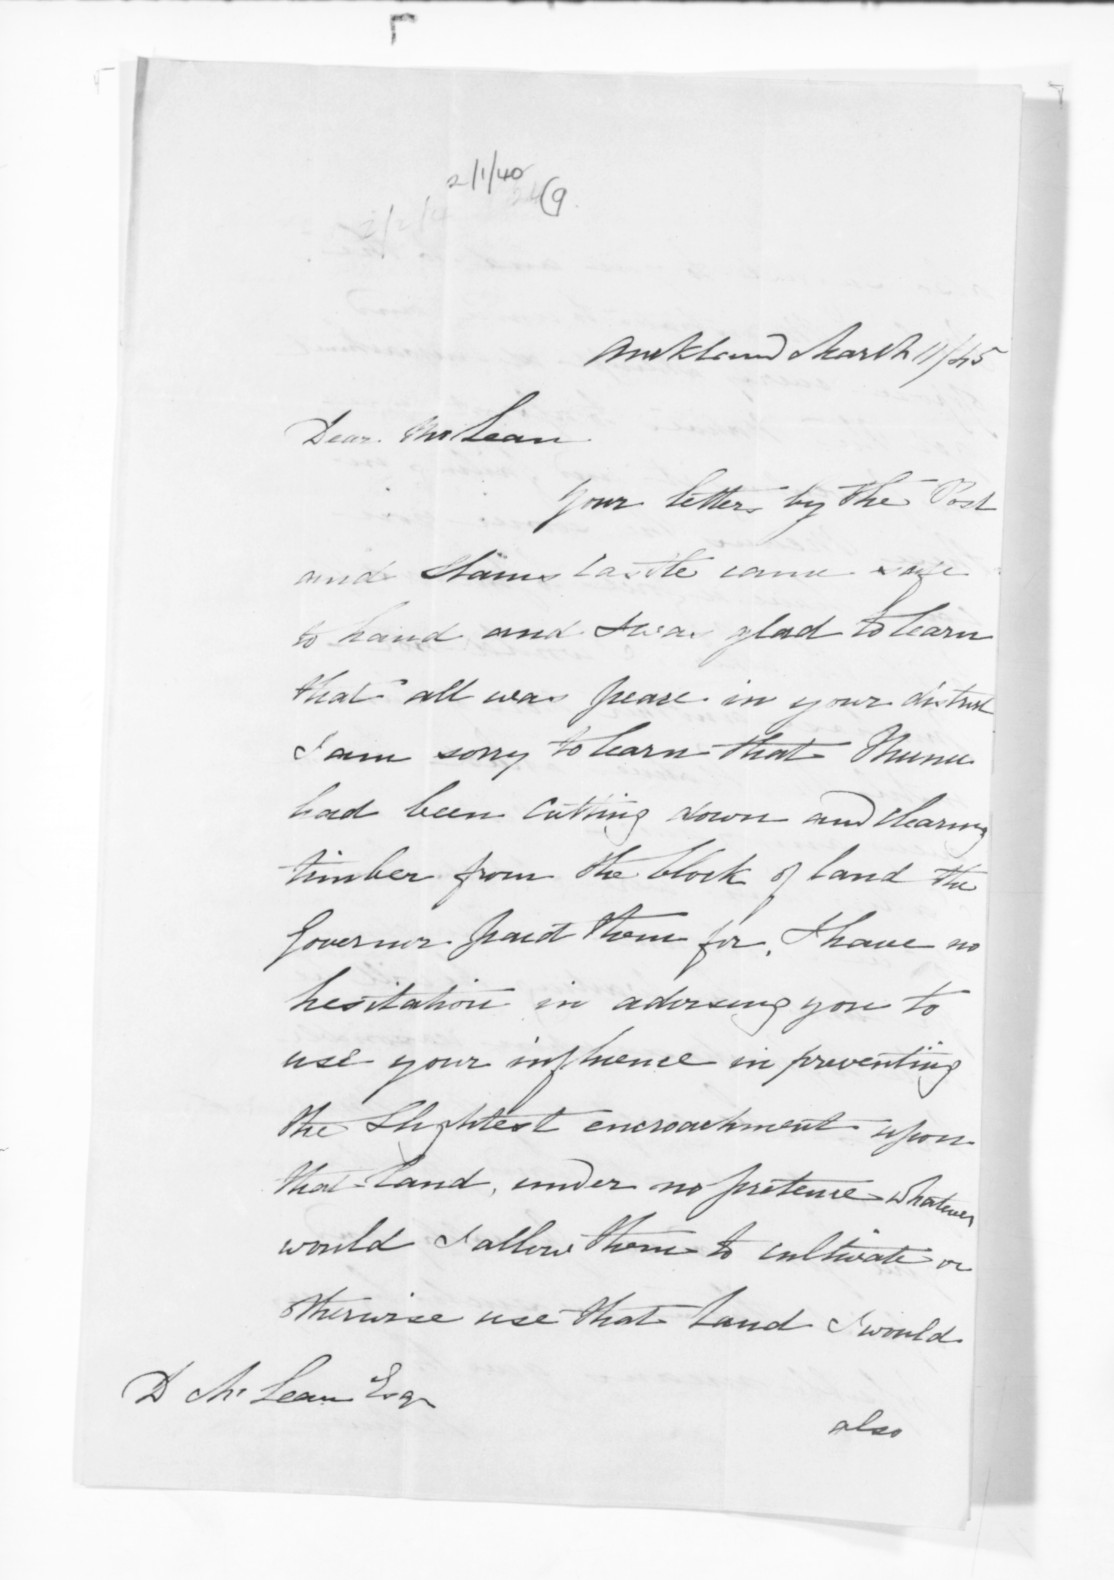 2/1/40
9
Auckland March 11/45
Dear McLean
Your letters by the Post
and Slains Castle came safe
to hand and I was glad to learn
that all was peace in your district
I am sorry to learn that
had been cutting down and clearing
timber from the block of land the
Governor paid them for, I have no
hesitation in advising you to
use your influence in preventing
the Slightest encroachment upon
that Land, under no pretence whatever
would I allow them to cultivate or
otherwise use that Land I would
D McLean Esqr
also